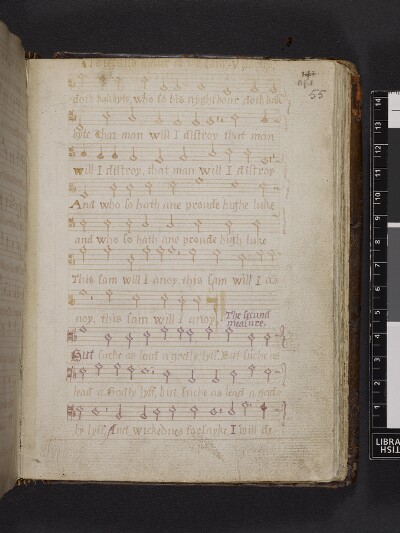 55
doth bakbyte, who so his nyghtboure doth bak
byte that man will I distroy that man
will I distroy, that man will I distroy
And who so hath ane proude highe luke
and who so hath ane proude high luke
This sam will I anoy, this sam will I a
noy, this sam will I anoy,
The secund
measure.
But suche as lead a godly lyff, But suche as
lead a Godly lyff, but suche as lead a god
ly lyff, And wickednes forsayke I will de
14
13
12
11
10
9
8
7
6
5
4
3
2
1
LIBRA